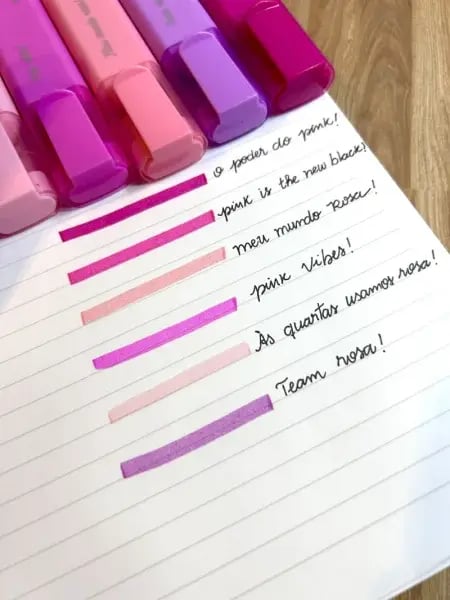 o poder do pink!
pink is the new black!
meu mundo rosa!
pink vibes!
Às quartas usamos rosa!
Team rosa!